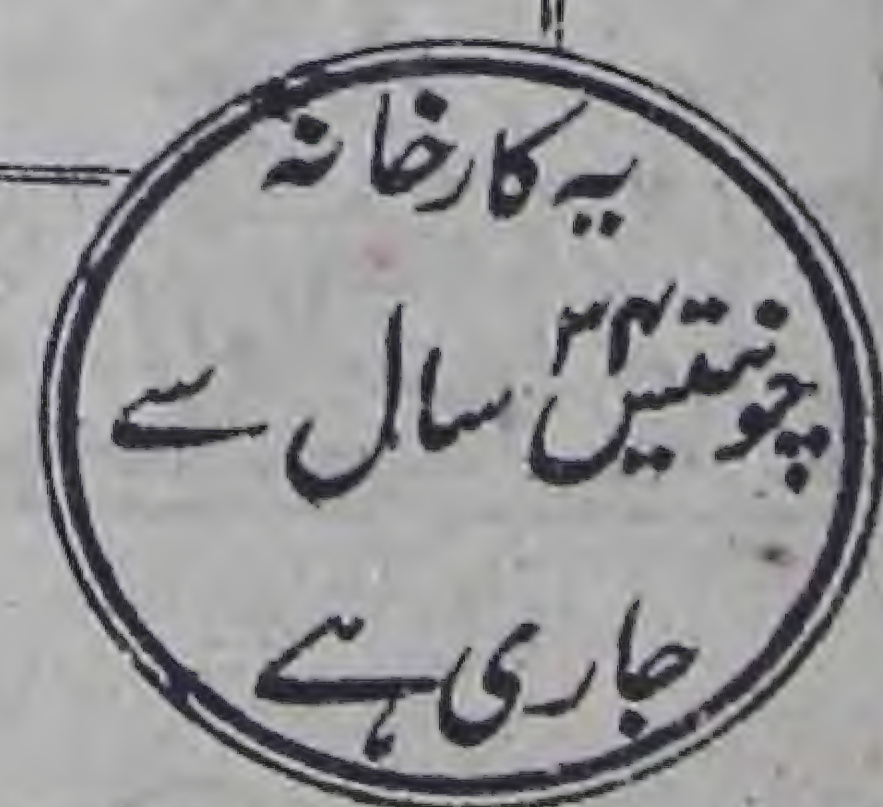 یہ کارخانہ
چونتیس ۳۴ سال سے
جاری ہے